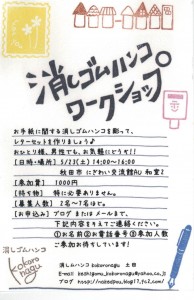 消しゴムハンコ
ワークショップ
お手紙に関する消しゴムハンコを彫って、
レターセットを作りましょう♪
おひとり様、男性でも、お気軽にどうぞ!!
【日時・場所】5/23(土) 14:00~16:00
秋田市にぎわい交流館AU 和室1
【参加費】 1000円
【持ち物】 特に必要ありません。
【募集人数】 2名~7名ほど。
【お申込み】 ブログ または メールまで。
下記内容をそえてご連絡ください。
①お名前②お電話番号③参加人数
ご参加お待ちしています!
消しゴムハンコ
kokoro
nagu
消しゴムハンコ kokoronagu 土田
E-mail
ブログ